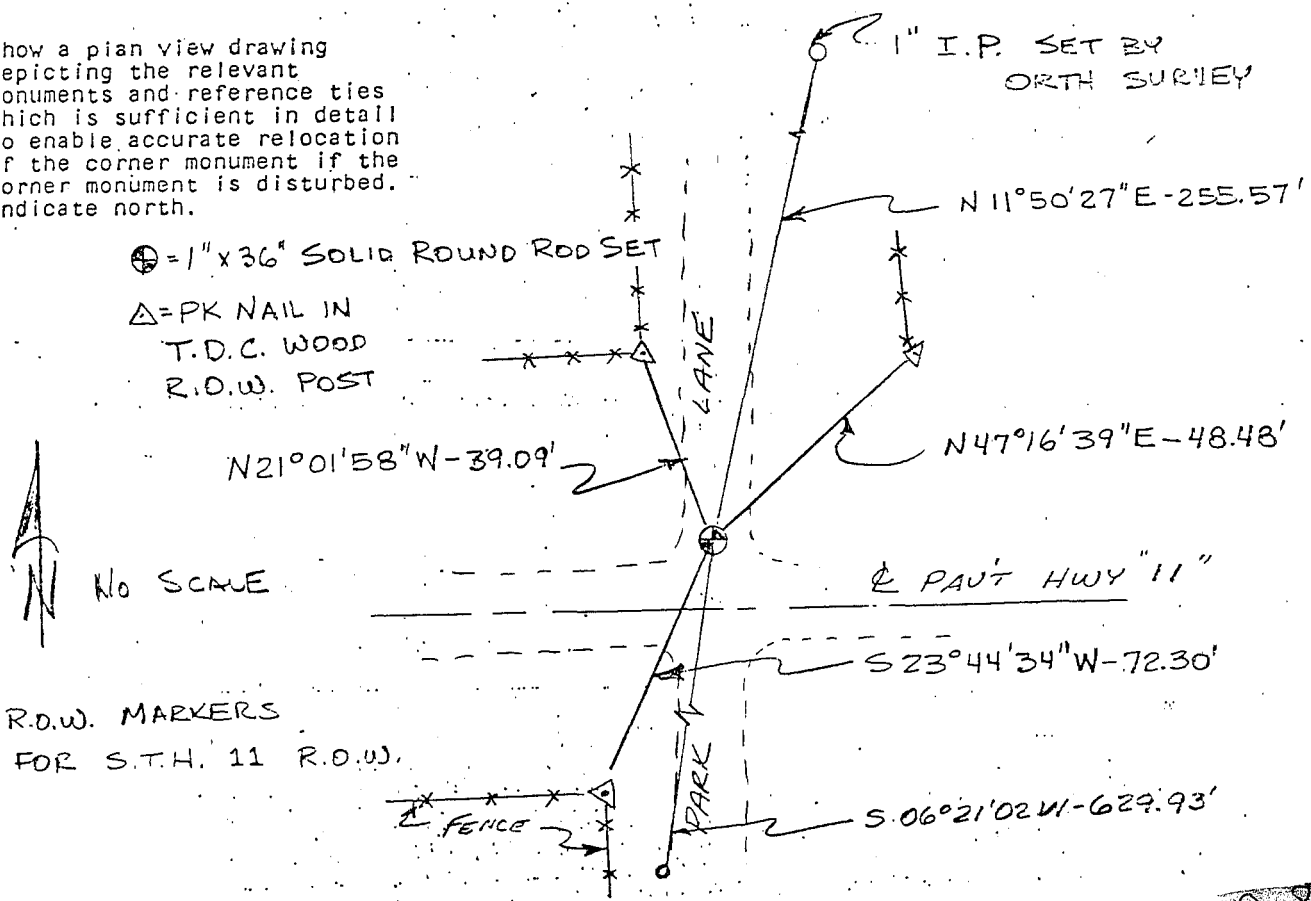 how a plan view drawing
epicting the relevant
onuments and reference ties
hich is sufficient in detail
o enable accurate relocation
f the corner monument if the
orner monument is disturbed.
ndicate north.
1" I.P. SET BY
ORTH SURVEY
N 11°50'27"E-255.57'
= 1" x 36" SOLID ROUND ROD SET
△ = PK NAIL IN
T.D.C. WOOD
R.O.W. POST
LANE
N21°01'58"W-39.09'
N47°16'39"E-48.48'
N
NO SCALE
℄ PAV'T HWY "11"
S 23°44'34"W-72.30'
R.O.W. MARKERS
FOR S.T.H. 11 R.O.W.
PARK
℄ FENCE
S 06°21'02W-629.93'